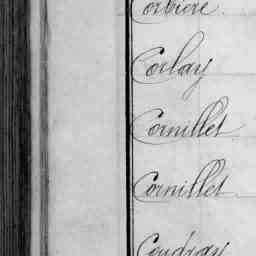 Corbiere
Corlay
Cornillet
Cornillet
Coudray